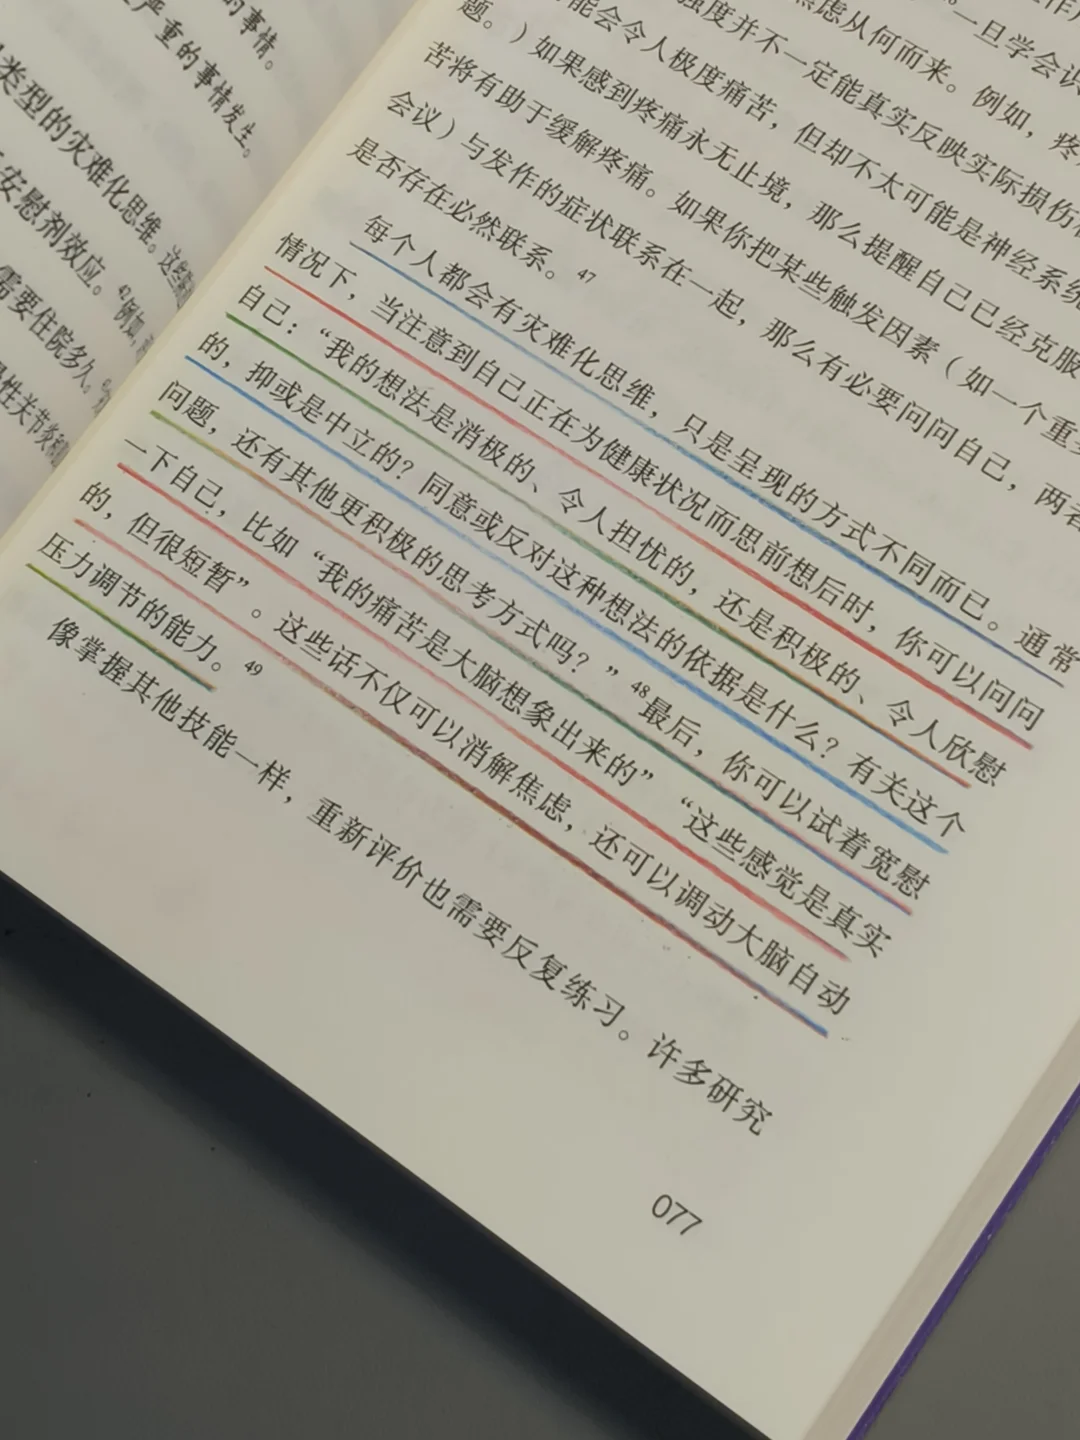 的事情。
严重的事情发生。
类型的灾难化思维。这些
安慰剂效应。42例如，
需要住院多久。
性关节炎和
焦虑从何而来。例如，疼
。一旦学会识
强度并不一定能真实反映实际损伤
能会令人极度痛苦，但却不太可能是神经系统
题。）如果感到疼痛永无止境，那么提醒自己已经克服
苦将有助于缓解疼痛。如果你把某些触发因素（如一个重
会议）与发作的症状联系在一起，那么有必要问问自己，两者
是否存在必然联系。47
每个人都会有灾难化思维，只是呈现的方式不同而已。通常
情况下，当注意到自己正在为健康状况而思前想后时，你可以问问
自己：“我的想法是消极的、令人担忧的，还是积极的、令人欣慰
的，抑或是中立的？同意或反对这种想法的依据是什么？有关这个
问题，还有其他更积极的思考方式吗？”48最后，你可以试着宽慰
一下自己，比如“我的痛苦是大脑想象出来的”“这些感觉是真实
的，但很短暂”。这些话不仅可以消解焦虑，还可以调动大脑自动
压力调节的能力。49
像掌握其他技能一样，重新评价也需要反复练习。许多研究
077